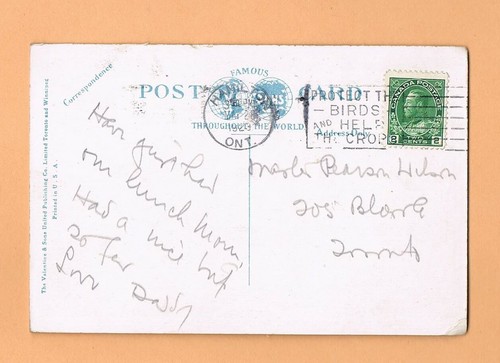 FAMOUS
POST CARD
THROUGHOUT THE WORLD
Correspondence
Address Only
The Valentine & Sons United Publishing Co. Limited Toronto and Winnipeg
Printed in U. S. A.
ONT.
PROTECT THE
BIRDS
AND HELP
THE CROPS
CANADA POSTAGE
2 CENTS 2
Have finished
our lunch Mom
Had a nice
so far
Love Daddy
Master Pearson Wilson
205
Toronto